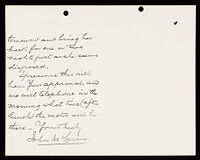 tomorrow and bring her
back for one or two
meals just as she seems
disposed.
I presume this will
have your approval, and
we will telephone in the
morning what time after
lunch the motor will be
there – Yours truly
John M.